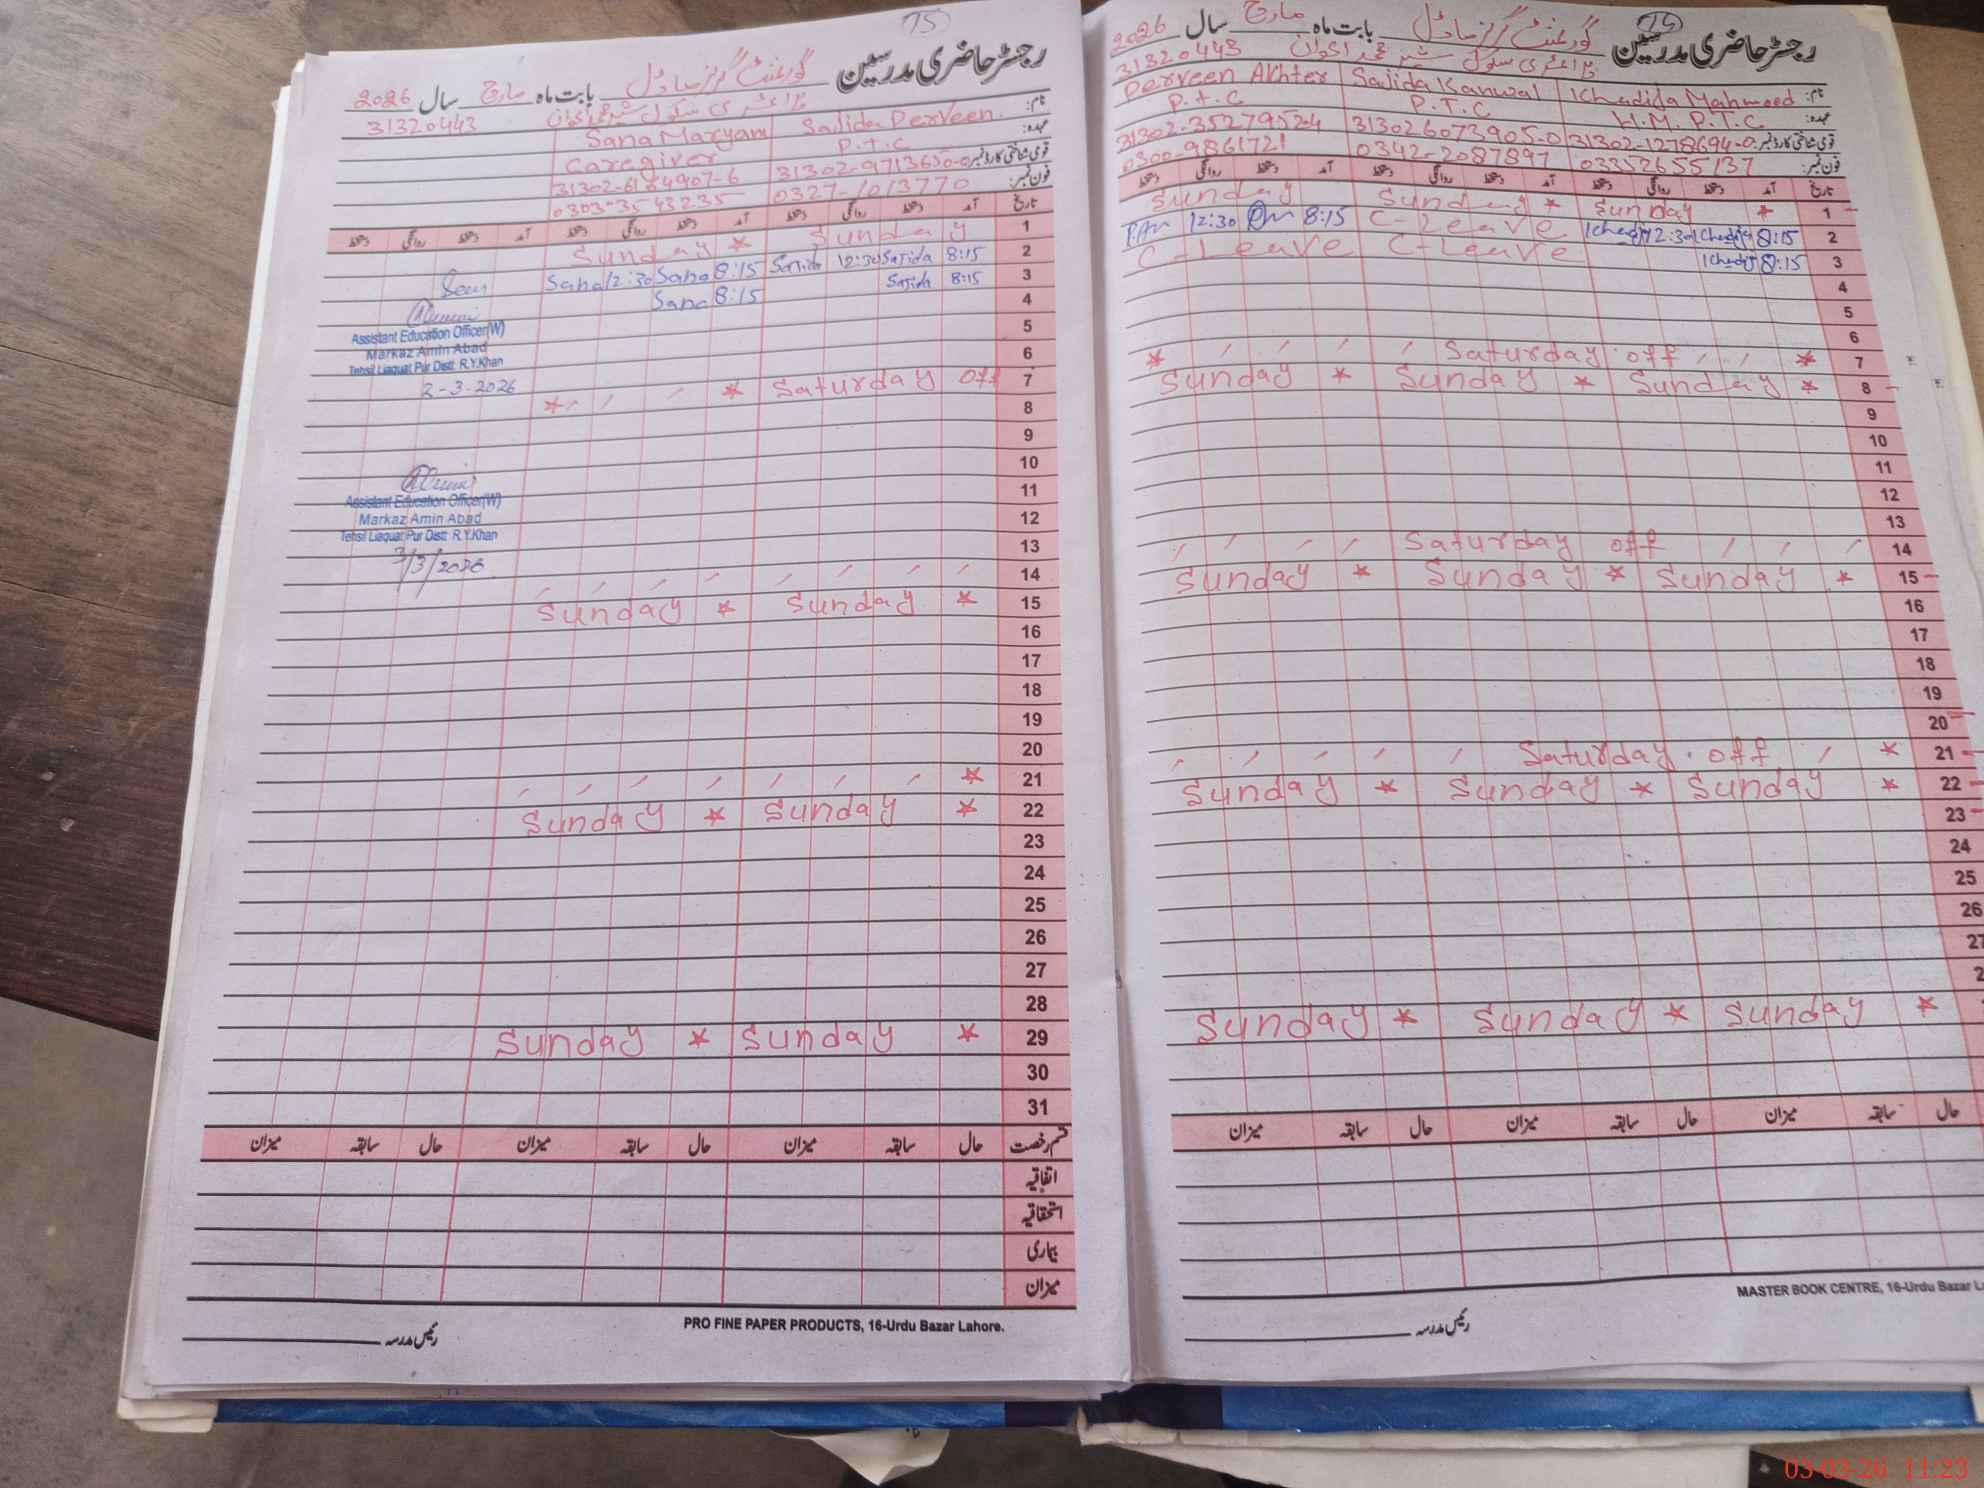 15
رجسٹر حاضری مدرسین گورنمنٹ گرلز ماڈل بابت ماہ مارچ سال 2026
31320443
نام: Sajida Perveen. Sana Maryam
عہدہ: P.T.C Caregiver
قومی شناختی کارڈ نمبر: 31302-9713650-0 31302-6184907-6
فون نمبر: 0327-1013770 0303-3543235
تاریخ آمد دستخط روانگی دستخط آمد دستخط روانگی دستخط آمد دستخط روانگی دستخط
1 Sunday * Sunday
2 8:15 Sajida 12:30 Sajida 8:15 Sana 12:30 Sana
3 8:15 Sajida 8:15 Sana
4
Assistant Education Officer(W)
Markaz Amin Abad
Tehsil Liaquat Pur Distt: R.Y.Khan
2-3-2026
5
6
7 Saturday off * *
8
9
10
Assistant Education Officer(W)
Markaz Amin Abad
Tehsil Liaquat Pur Distt: R.Y.Khan
3/3/2026
11
12
13
14
15 * Sunday * Sunday
16
17
18
19
20
21 *
22 * Sunday * Sunday
23
24
25
26
27
28
29 * Sunday * Sunday
30
31
قسم رخصت حال سابقہ میزان حال سابقہ میزان حال سابقہ میزان
اتفاقیہ
استحقاقیہ
بیماری
میزان
PRO FINE PAPER PRODUCTS, 16-Urdu Bazar Lahore.
رئیس مدرسہ
رجسٹر حاضری مدرسین گورنمنٹ گرلز ماڈل بابت ماہ مارچ سال 2026
31320443
نام: Khadida Mahmood Sajida Kanwal Perveen Akhter
عہدہ: H.M. P.T.C. P.T.C P.T.C
قومی شناختی کارڈ نمبر: 31302-1278694-0 313026073905-0 31302-3527952-4
فون نمبر: 03352655137 0342-2087897 0300-9861721
تاریخ آمد دستخط روانگی دستخط آمد دستخط روانگی دستخط آمد دستخط روانگی دستخط
1 * Sunday * Sunday Sunday
2 8:15 12:30 C-Leave 8:15 12:30
3 8:15 C-Leave C-Leave
4
5
6
7 * Saturday off *
8 * Sunday * Sunday * Sunday
9
10
11
12
13
14 Saturday off
15 * Sunday * Sunday * Sunday
16
17
18
19
20
21 * Saturday off
22 * Sunday * Sunday * Sunday
23
24
25
26
27
2
* Sunday * Sunday * Sunday
حال سابقہ میزان حال سابقہ میزان حال سابقہ میزان
MASTER BOOK CENTRE, 16-Urdu Bazar L
رئیس مدرسہ
03-03-26 11:23